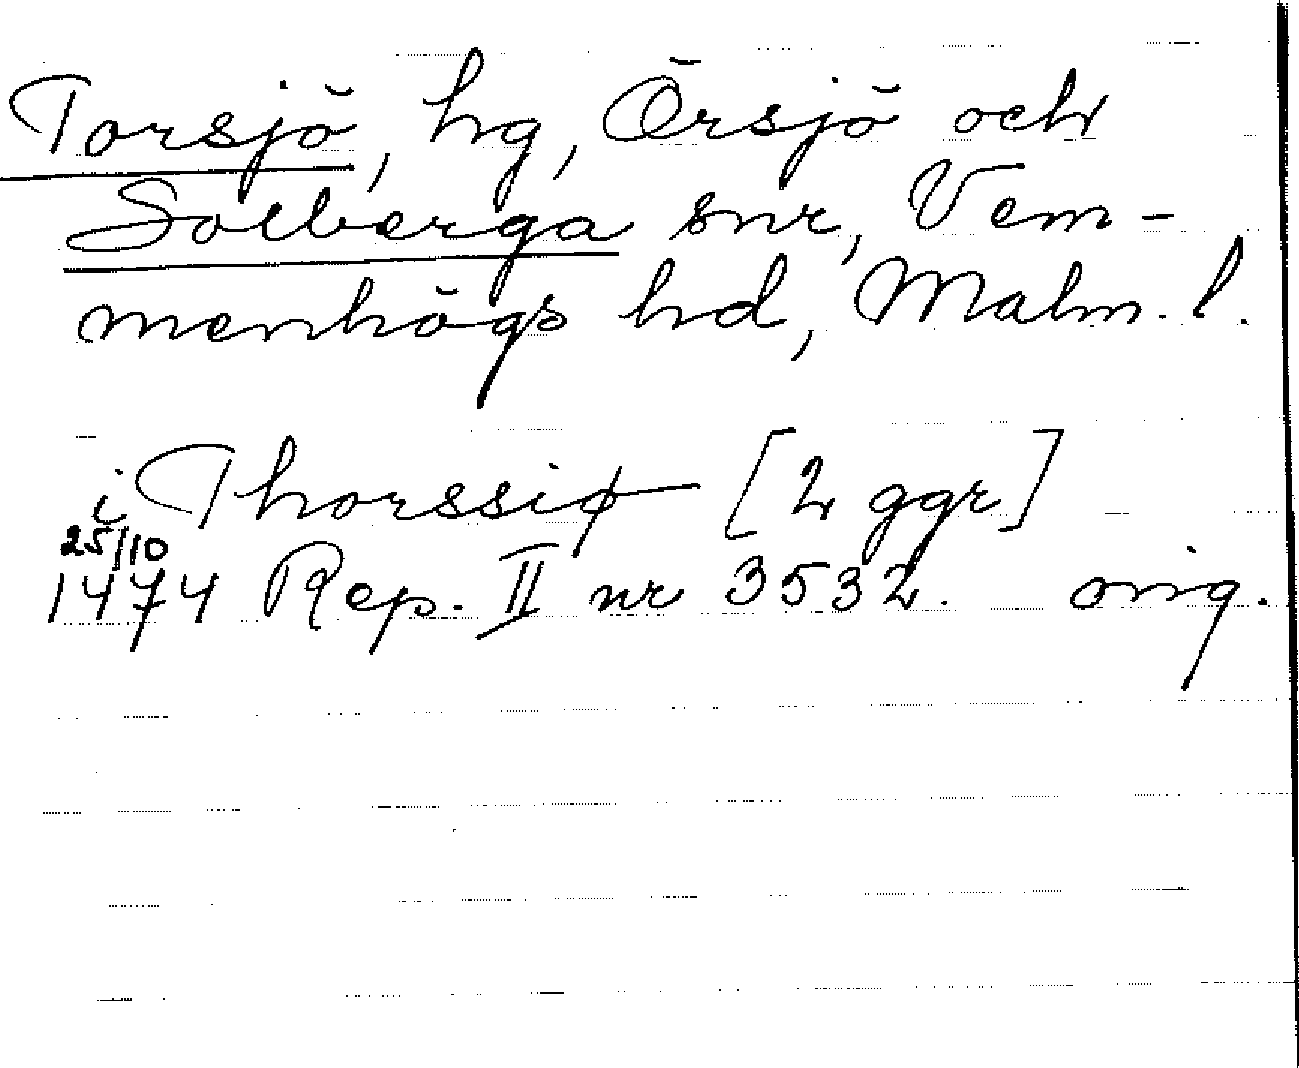 Torsjö, hg, Örsjö och
Solberga snr, Vem-
menhögs hd, Malm. l.
i Thorssiø [2 ggr]
25/10
1474 Rep. II nr 3532. orig.